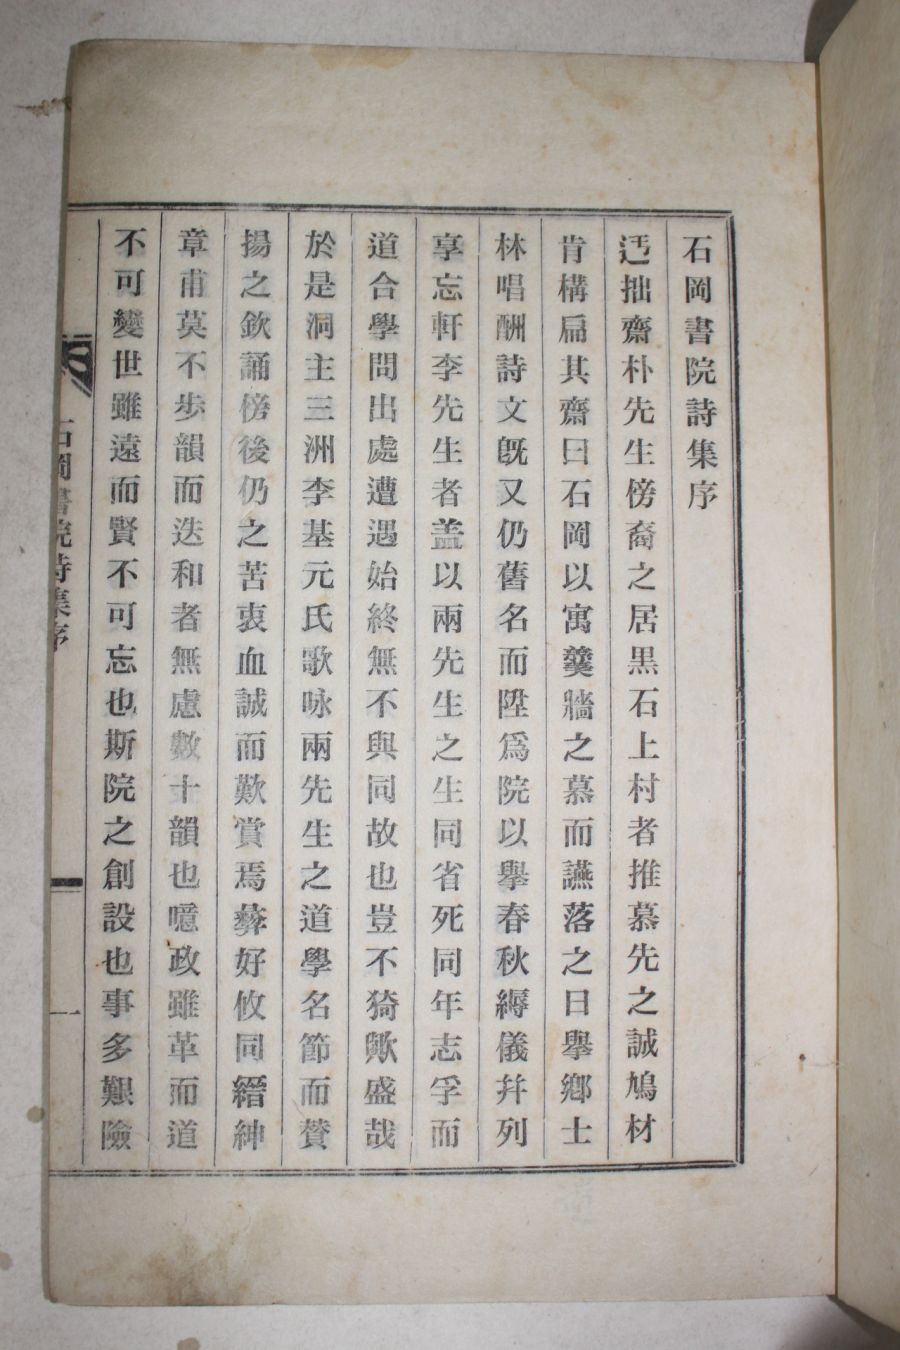 石岡書院詩集序
迃拙齋朴先生傍裔之居黑石上村者推慕先之誠鳩材
肯構扁其齋曰石岡以寓羹牆之慕而讌落之日擧鄕士
林唱酬詩文旣又仍舊名而陞爲院以擧春秋縟儀幷列
享忘軒李先生者盖以兩先生之生同省死同年志孚而
道合學問出處遭遇始終無不與同故也豈不猗歟盛哉
於是洞主三洲李基元氏歌咏兩先生之道學名節而贊
揚之欽誦傍後仍之苦衷血誠而歎賞焉彝好攸同縉紳
章甫莫不步韻而迭和者無慮數十韻也噫政雖革而道
不可變世雖遠而賢不可忘也斯院之創設也事多艱險
石岡書院詩集序
一